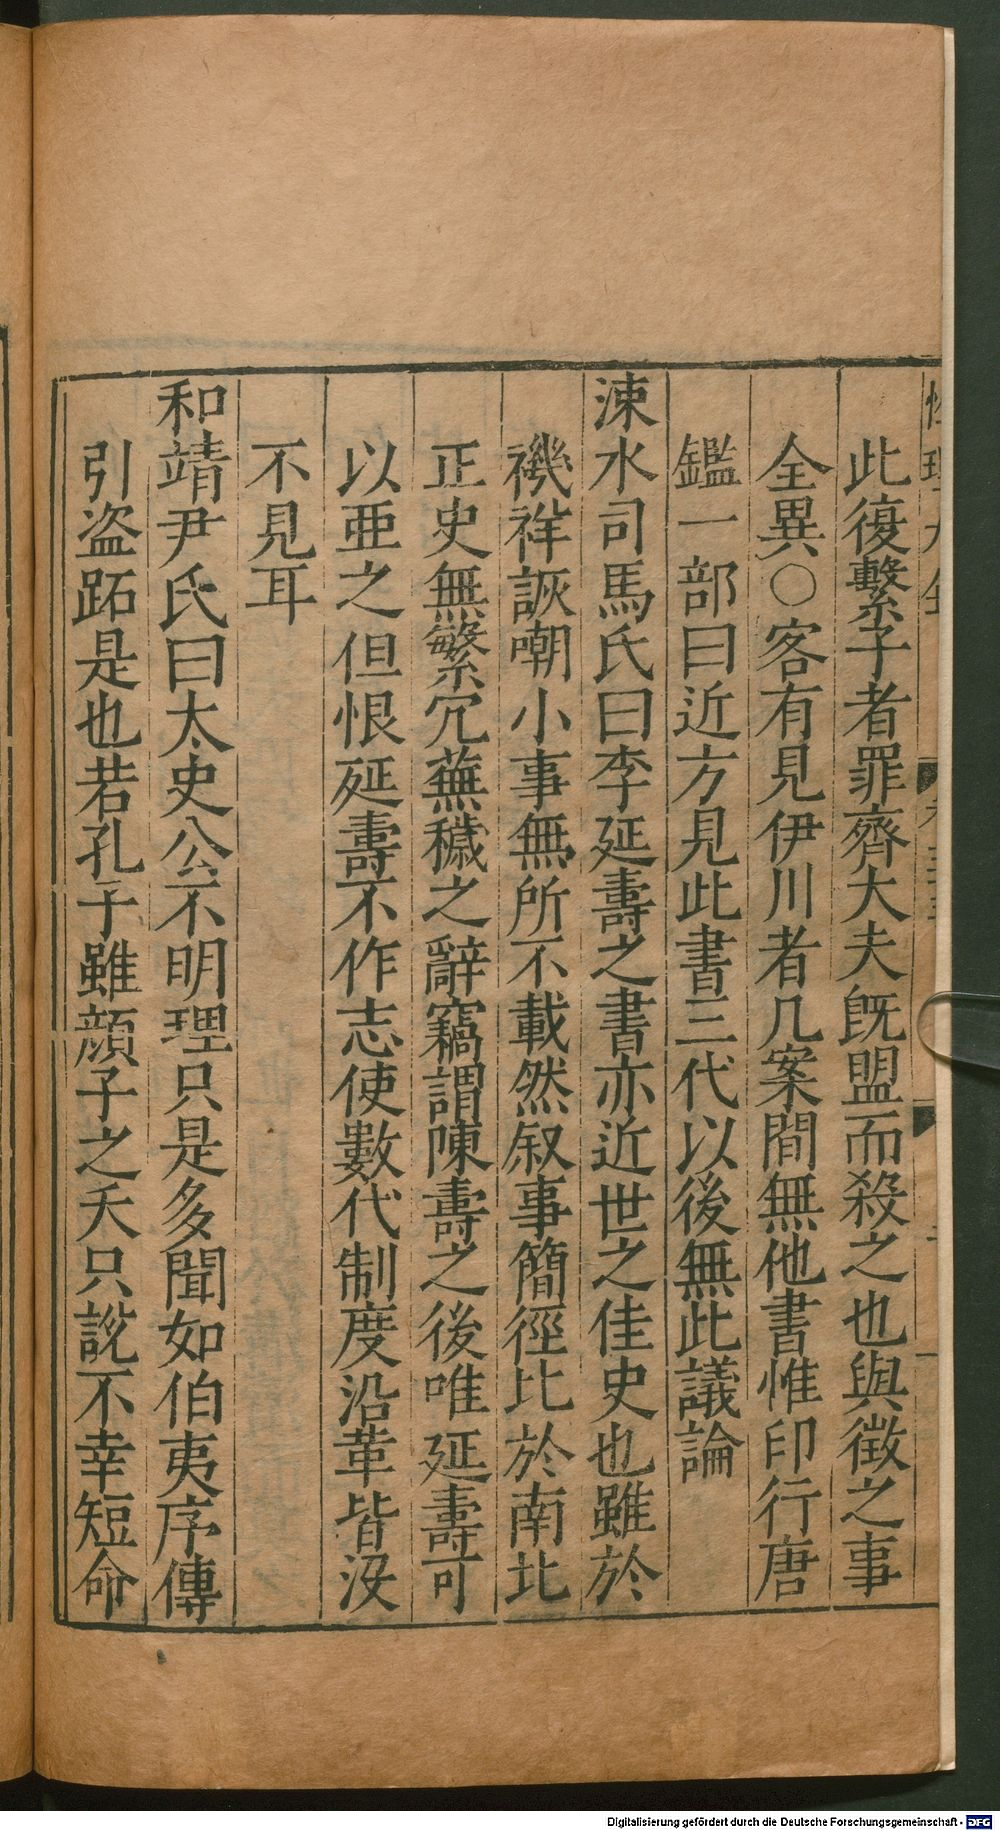 此復繫子者罪齊大夫旣盟而殺之也與徵之事
全異○客有見伊川者几案間無他書惟印行唐
鑑一部曰近方見此書三代以後無此議論
涑水司馬氏曰李延壽之書亦近世之佳史也雖於
禨祥詼嘲小事無所不載然叙事簡徑比於南北
正史無繁冗蕪穢之辭竊謂陳壽之後唯延壽可
以亞之但恨延壽不作志使數代制度沿革皆沒
不見耳
和靖尹氏曰太史公不明理只是多聞如伯夷序傳
引盜跖是也若孔子雖顔子之夭只說不幸短命
Digitalisierung gefördert durch die Deutsche Forschungsgemeinschaft - DFG